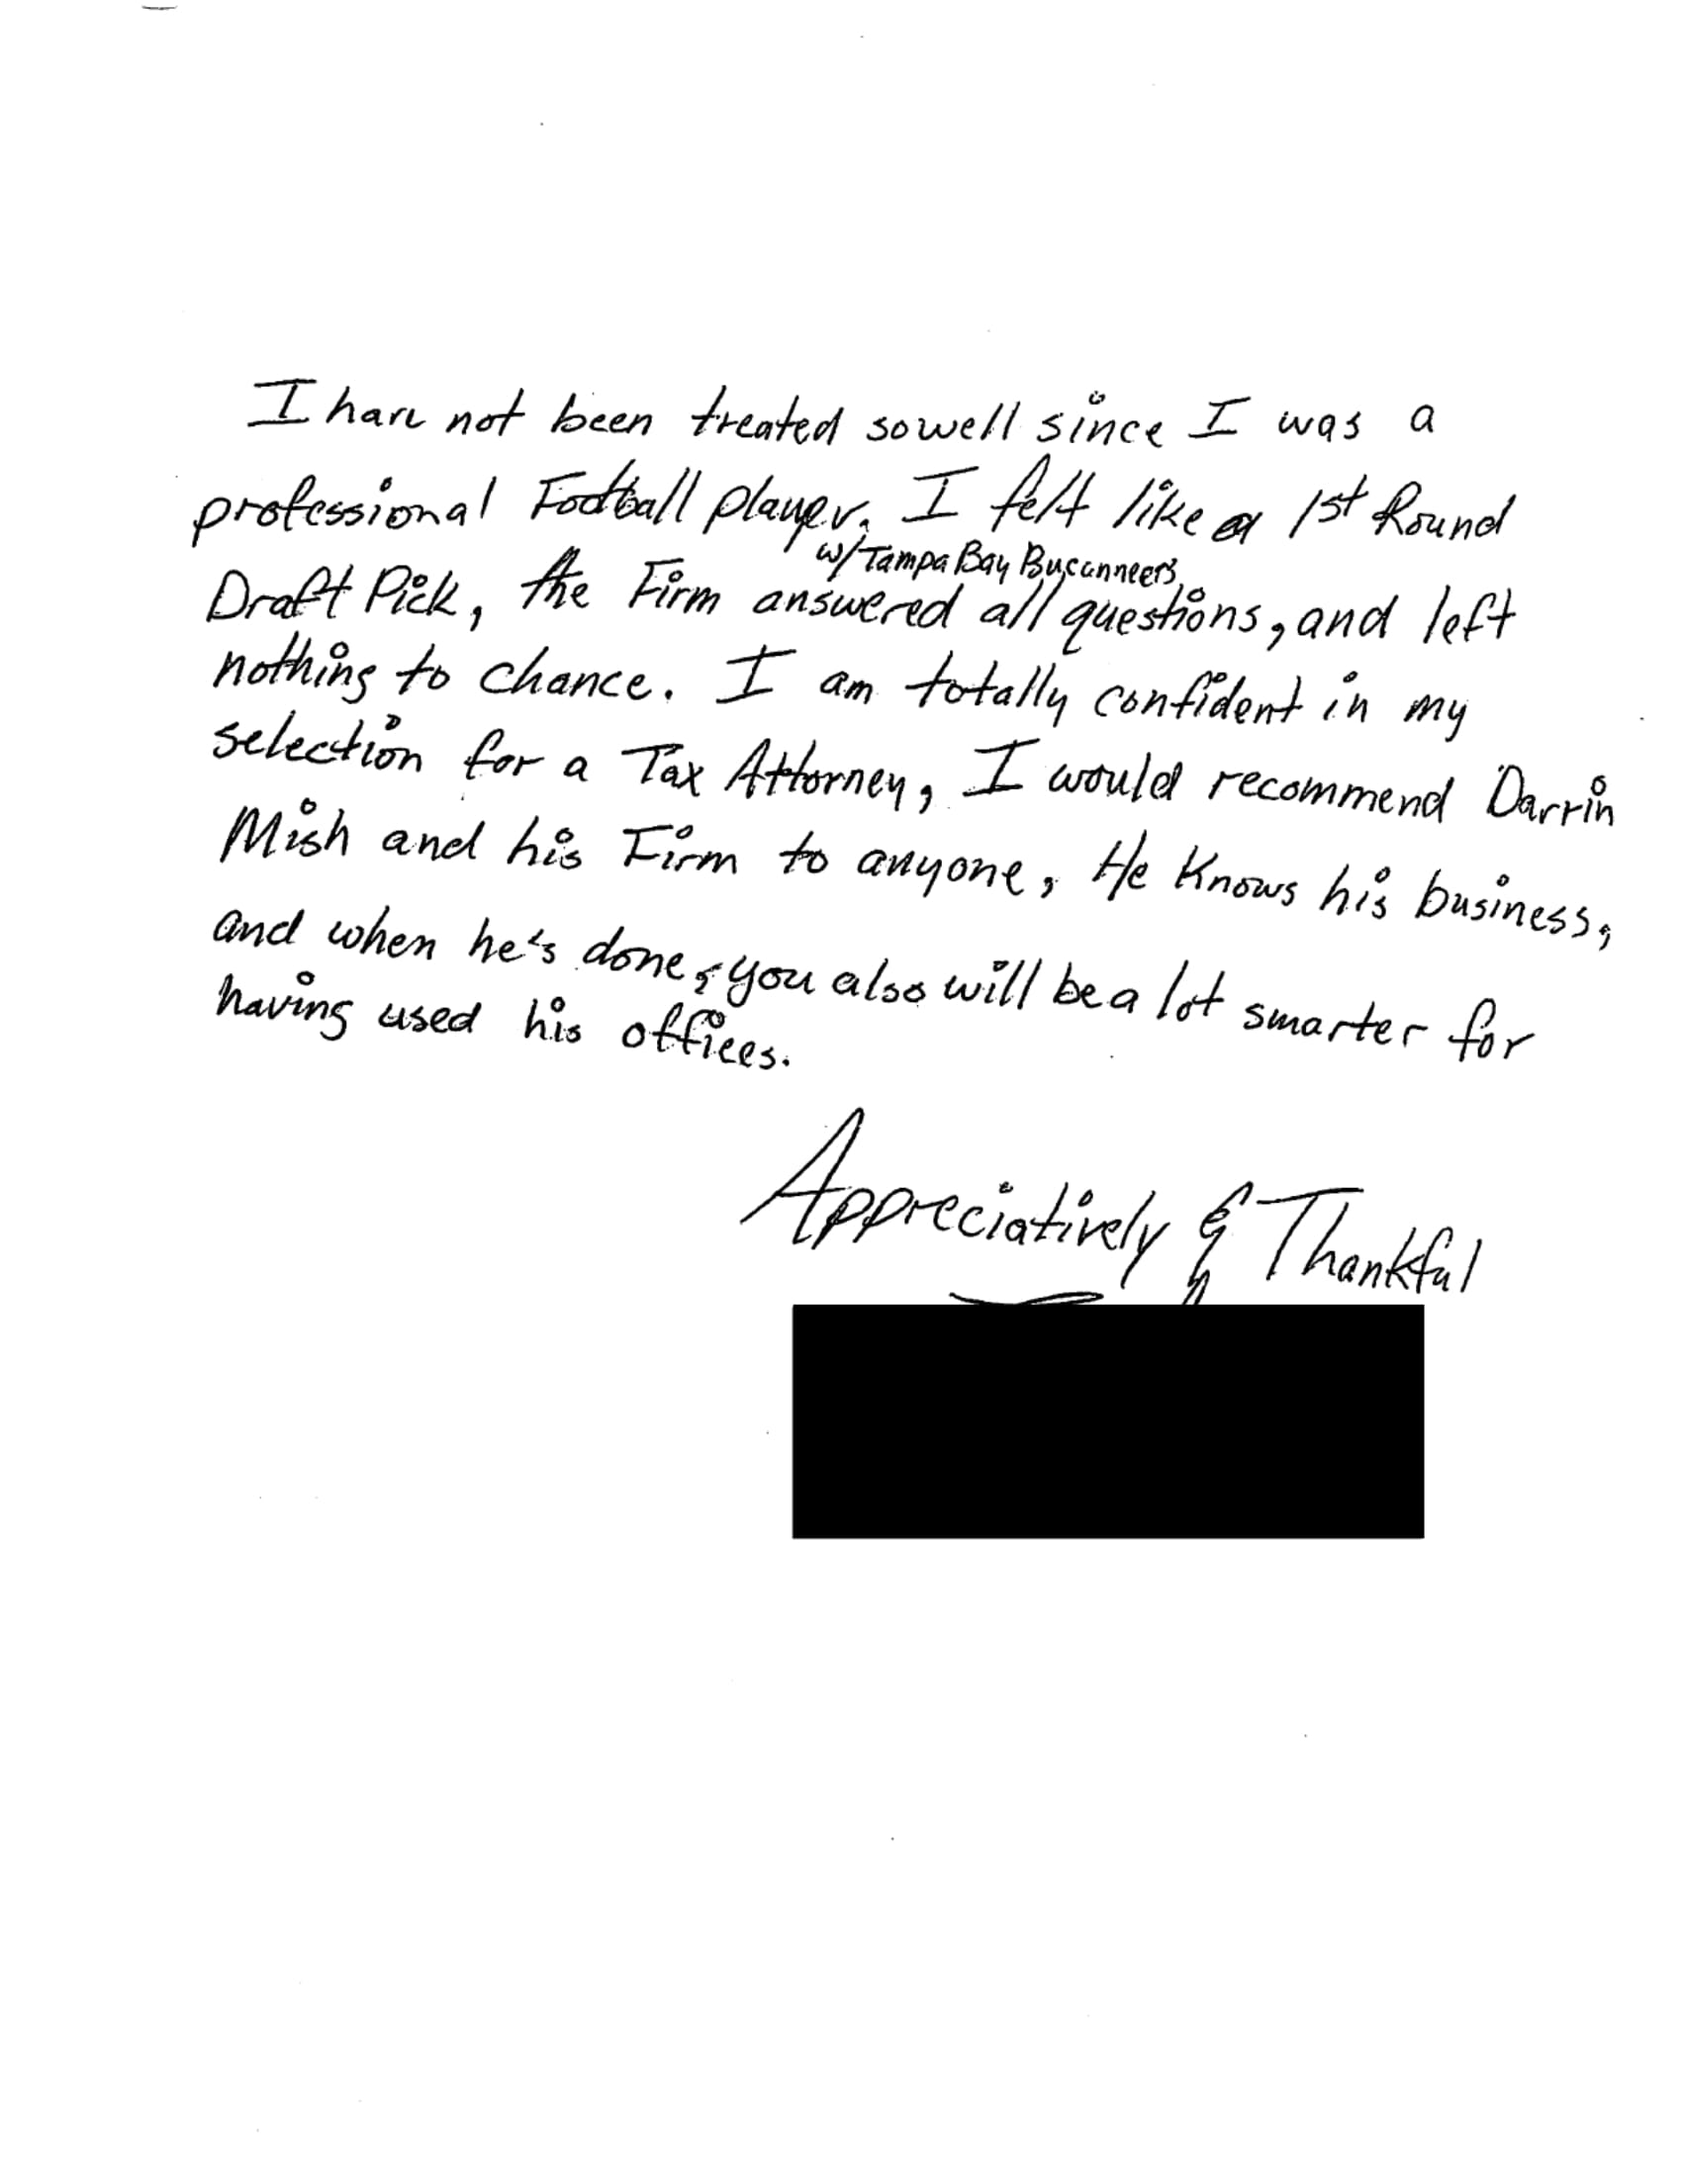 I have not been treated so well since I was a
professional Football player. I felt like a 1st Round
w/Tampa Bay Bucanneers
Draft Pick, the Firm answered all questions, and left
nothing to chance. I am totally confident in my
selection for a Tax Attorney, I would recommend Darrin
Mish and his Firm to anyone, He Knows his business,
and when he's done, you also will be a lot smarter for
having used his offices.
Appreciatively & Thankful